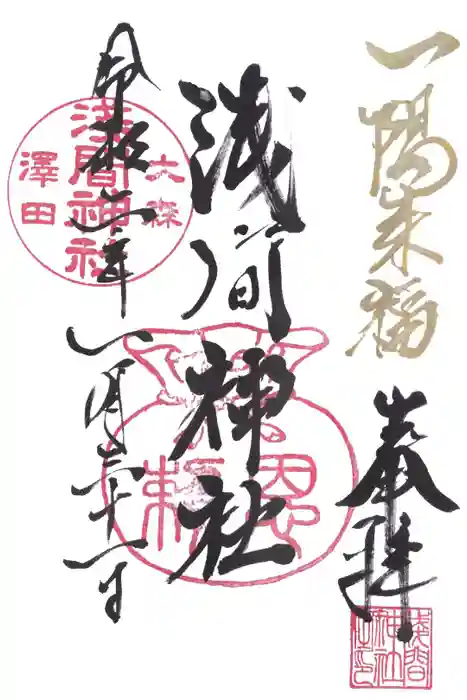 一陽来福
奉拝
淺間神社之印
浅間神社
恩頼
大森
浅間神社
澤田
令和
年
一月三十一日